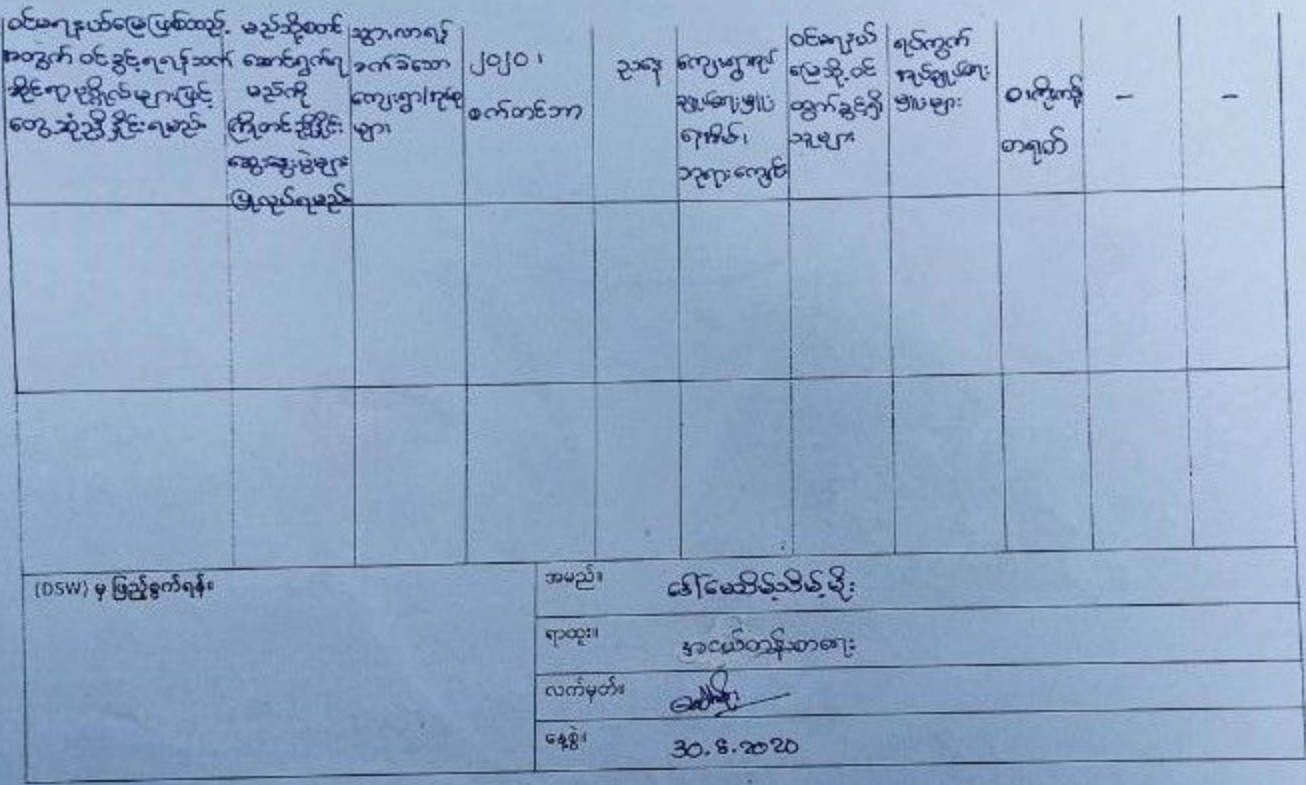 ဝင်မရနယ်မြေဖြစ်သည့်
အတွက် ဝင်ခွင့်ရရန်သက်
ဆိုင်ရာပုဂ္ဂိုလ်များဖြင့်
တွေ့ဆုံညှိနှိုင်းရမည်
မည်သို့စတင်
ဆောင်ရွက်ရ
မည်ကို
ကြိုတင်ညှိနှိုင်း
ဆွေးနွေးပွဲများ
ပြုလုပ်ရမည်
သွားလာရန်
ခက်ခဲသော
ကျေးရွာ/အုပ်စု
များ
၂၀၂၀၊
စက်တင်ဘာ
ညနေ
ကျေးရွာအုပ်
ချုပ်ရေးမှူး
ရုံးအိမ်၊
ဘုရားကျောင်း
ဝင်မရနယ်
မြေသို့ ဝင်
ထွက်ခွင့်ရှိ
သူများ
ရပ်ကွက်
အုပ်ချုပ်ရေး
မှူးများ
ဝါကိုကန့်
စာရွက်
–
–
(DSW) မှ ဖြည့်စွက်ရန်။
အမည်။ ဒေါ်မေသိမ့်သိမ့်မိုး
ရာထူး။ အငယ်တန်းစာရေး
လက်မှတ်။
နေ့စွဲ။ 30.8.2020